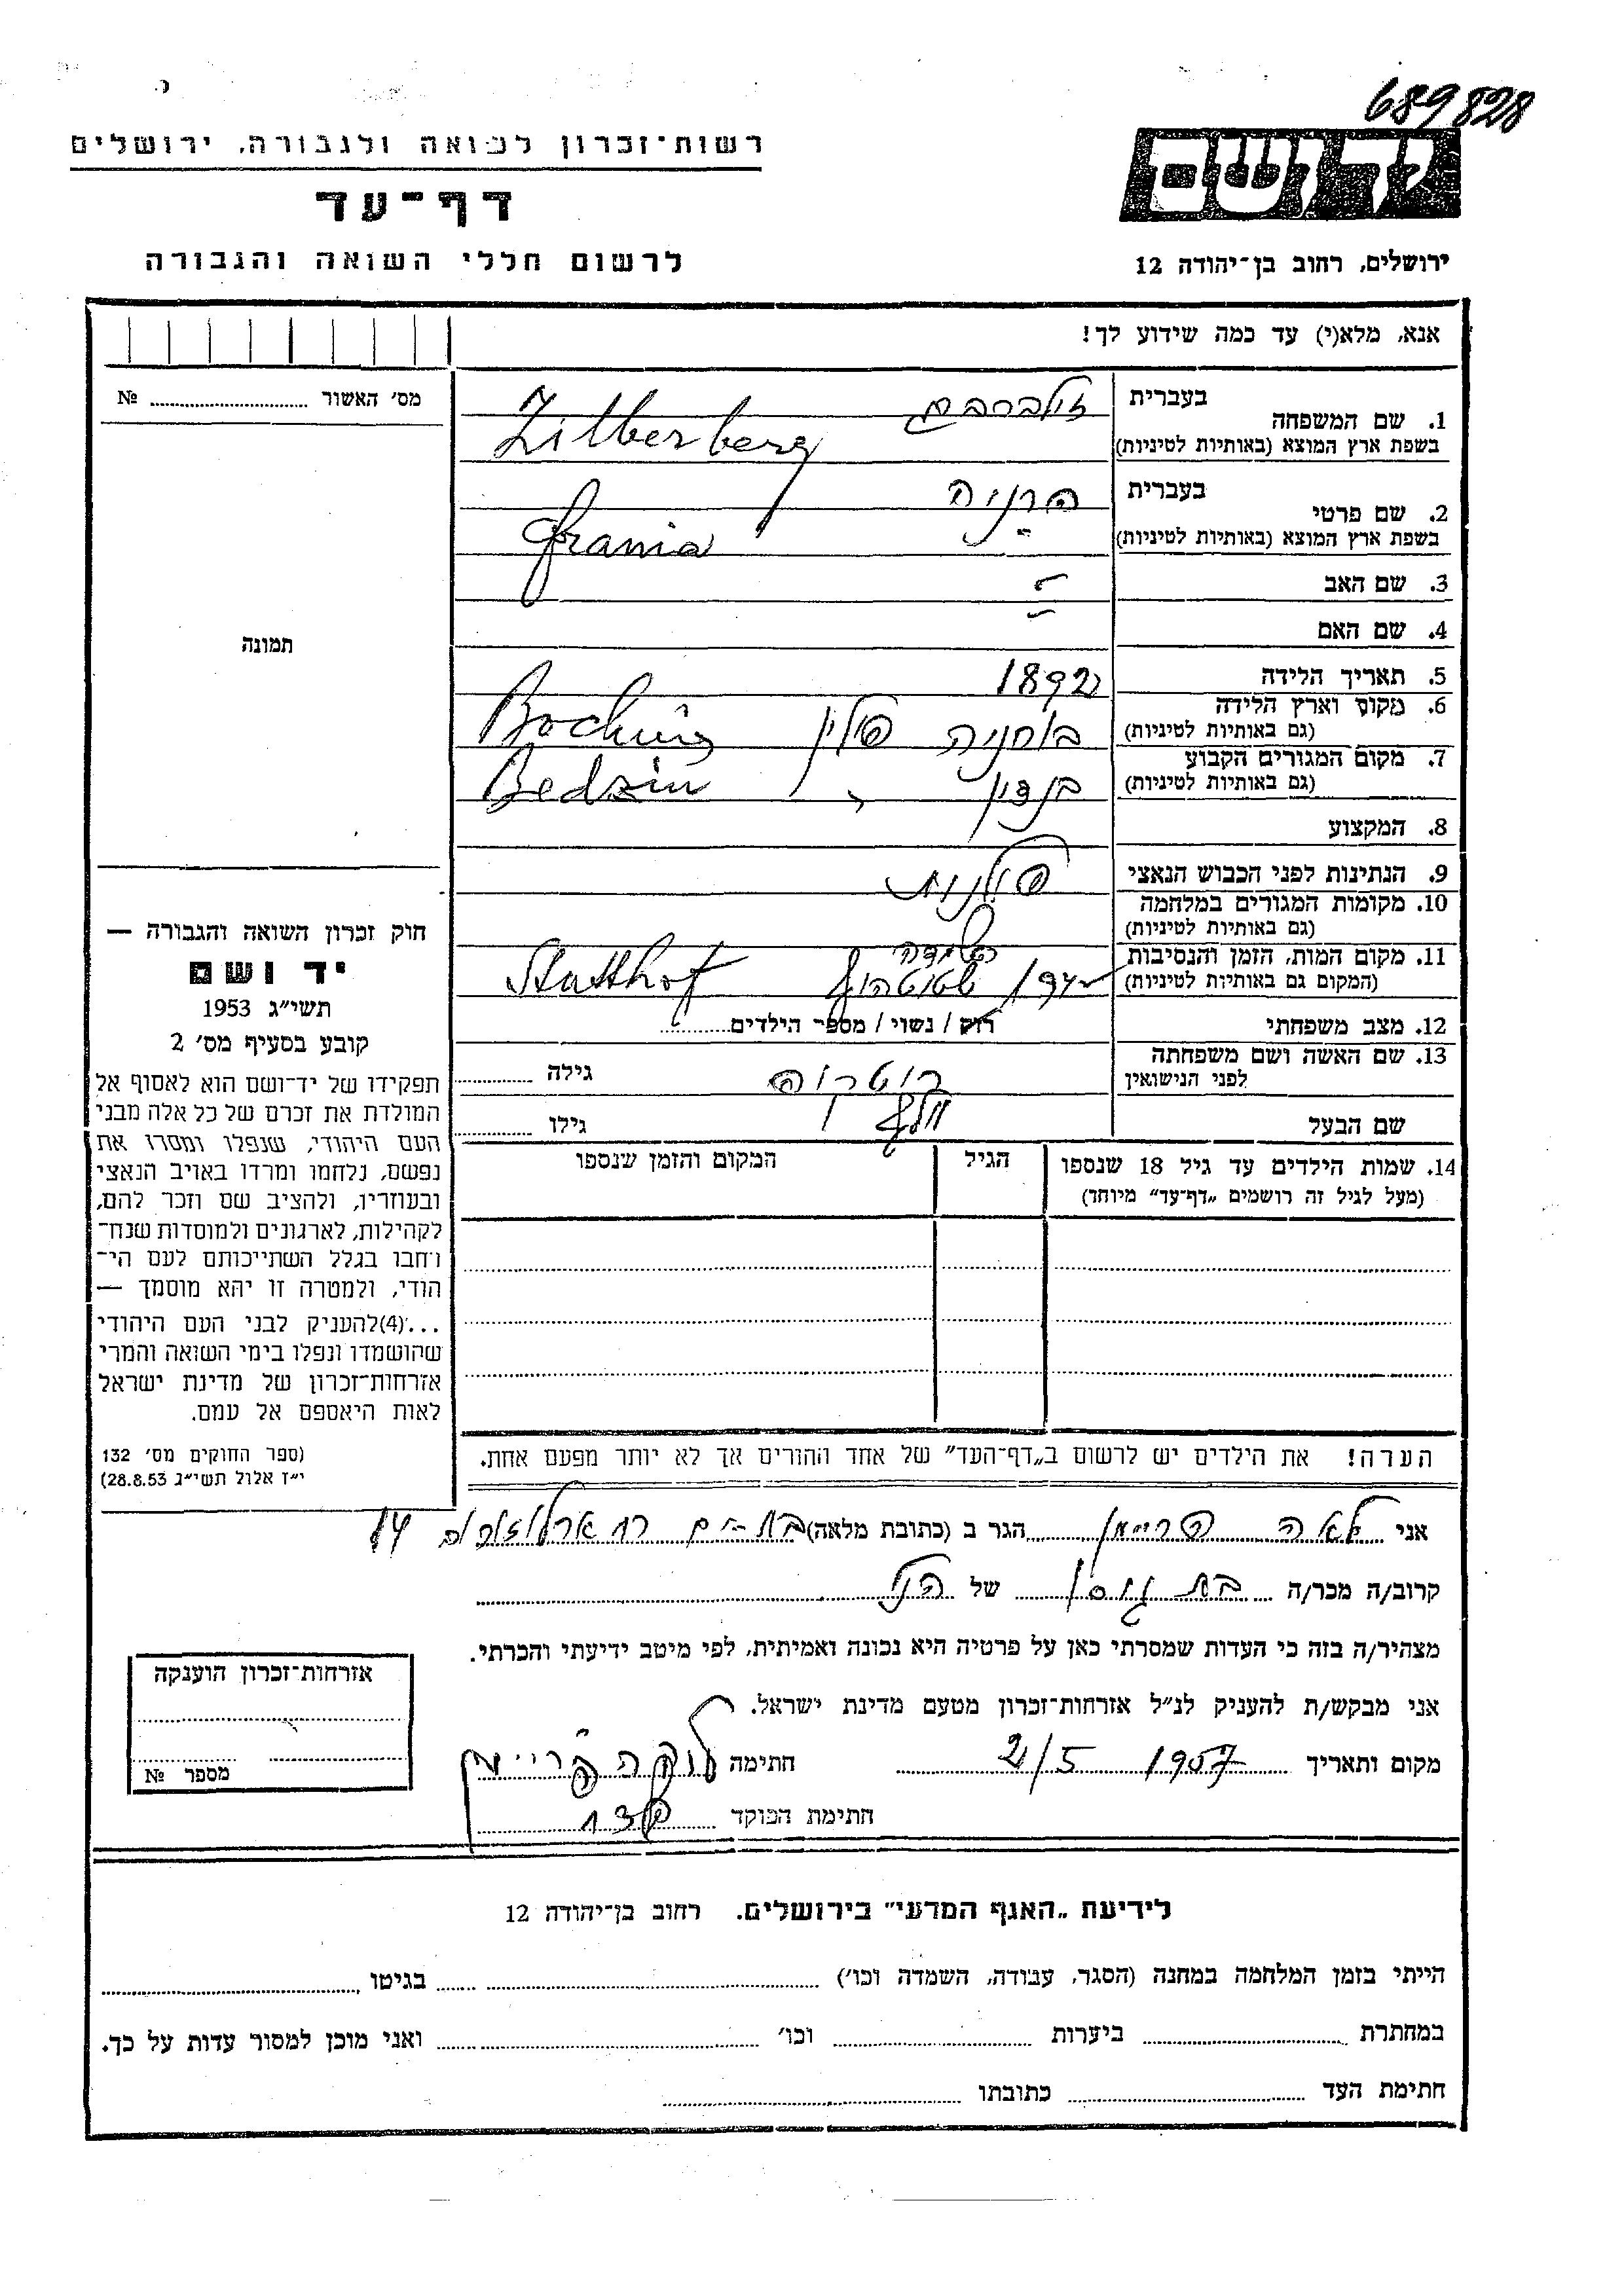 689828
רשות־זכרון לשואה ולגבורה, ירושלים
דף־עד
לרשום חללי השואה והגבורה
יד ושם
ירושלים, רחוב בן־יהודה 12
אנא, מלא(י) עד כמה שידוע לך!
מס׳ האשור № 
1. שם המשפחה
בעברית זילברברג
בשפת ארץ המוצא (באותיות לטיניות) Zilberberg
2. שם פרטי
בעברית פרניה
בשפת ארץ המוצא (באותיות לטיניות) frania
3. שם האב -
4. שם האם -
5. תאריך הלידה 1892
6. מקום וארץ הלידה
(גם באותיות לטיניות) בוחניה פולין Bochnia
7. מקום המגורים הקבוע
(גם באותיות לטיניות) בנדין Bedzin
8. המקצוע
9. הנתינות לפני הכבוש הנאצי פולנית
10. מקומות המגורים במלחמה
(גם באותיות לטיניות)
11. מקום המות, הזמן והנסיבות
(המקום גם באותיות לטיניות) שטוטהוף Stutthof
12. מצב משפחתי רוק / נשוי / מספר הילדים
13. שם האשה ושם משפחתה
לפני הנישואין גילה
שם הבעל וולף גילו
14. שמות הילדים עד גיל 18 שנספו
(מעל לגיל זה רושמים „דף־עד” מיוחד)
הגיל
המקום והזמן שנספו
הערה! את הילדים יש לרשום ב„דף־העד” של אחד ההורים אך לא יותר מפעם אחת.
תמונה
חוק זכרון השואה והגבורה —
יד ושם
תשי״ג 1953
קובע בסעיף מס׳ 2
תפקידו של יד־ושם הוא לאסוף אל
המולדת את זכרם של כל אלה מבני
העם היהודי, שנפלו ומסרו את
נפשם, נלחמו ומרדו באויב הנאצי
ובעוזריו, ולהציב שם וזכר להם,
לקהילות, לארגונים ולמוסדות שנח־
רבו בגלל השתייכותם לעם הי־
הודי, ולמטרה זו יהא מוסמך —
...(4)להעניק לבני העם היהודי
שהושמדו ונפלו בימי השואה והמרי
אזרחות־זכרון של מדינת ישראל
לאות היאספם אל עמם.
(ספר החוקים מס׳ 132
י״ז אלול תשי״ג 28.8.53)
אני לאה פריימן הגר ב (כתובת מלאה) בת-ים רח ארלוזורוב 14
קרוב/ה מכר/ה בת גיסו של הנ״ל
מצהיר/ה בזה כי העדות שמסרתי כאן על פרטיה היא נכונה ואמיתית, לפי מיטב ידיעתי והכרתי.
אני מבקש/ת להעניק לנ״ל אזרחות־זכרון מטעם מדינת ישראל.
מקום ותאריך 2/5 1957 חתימה פריימן
חתימת הפוקד
אזרחות־זכרון הוענקה
מספר №
לידיעת „האגף המדעי” בירושלים. רחוב בן־יהודה 12
הייתי בזמן המלחמה במחנה (הסגר, עבודה, השמדה וכו׳) בגיטו
במחתרת ביערות וכו׳ ואני מוכן למסור עדות על כך.
חתימת העד כתובתו